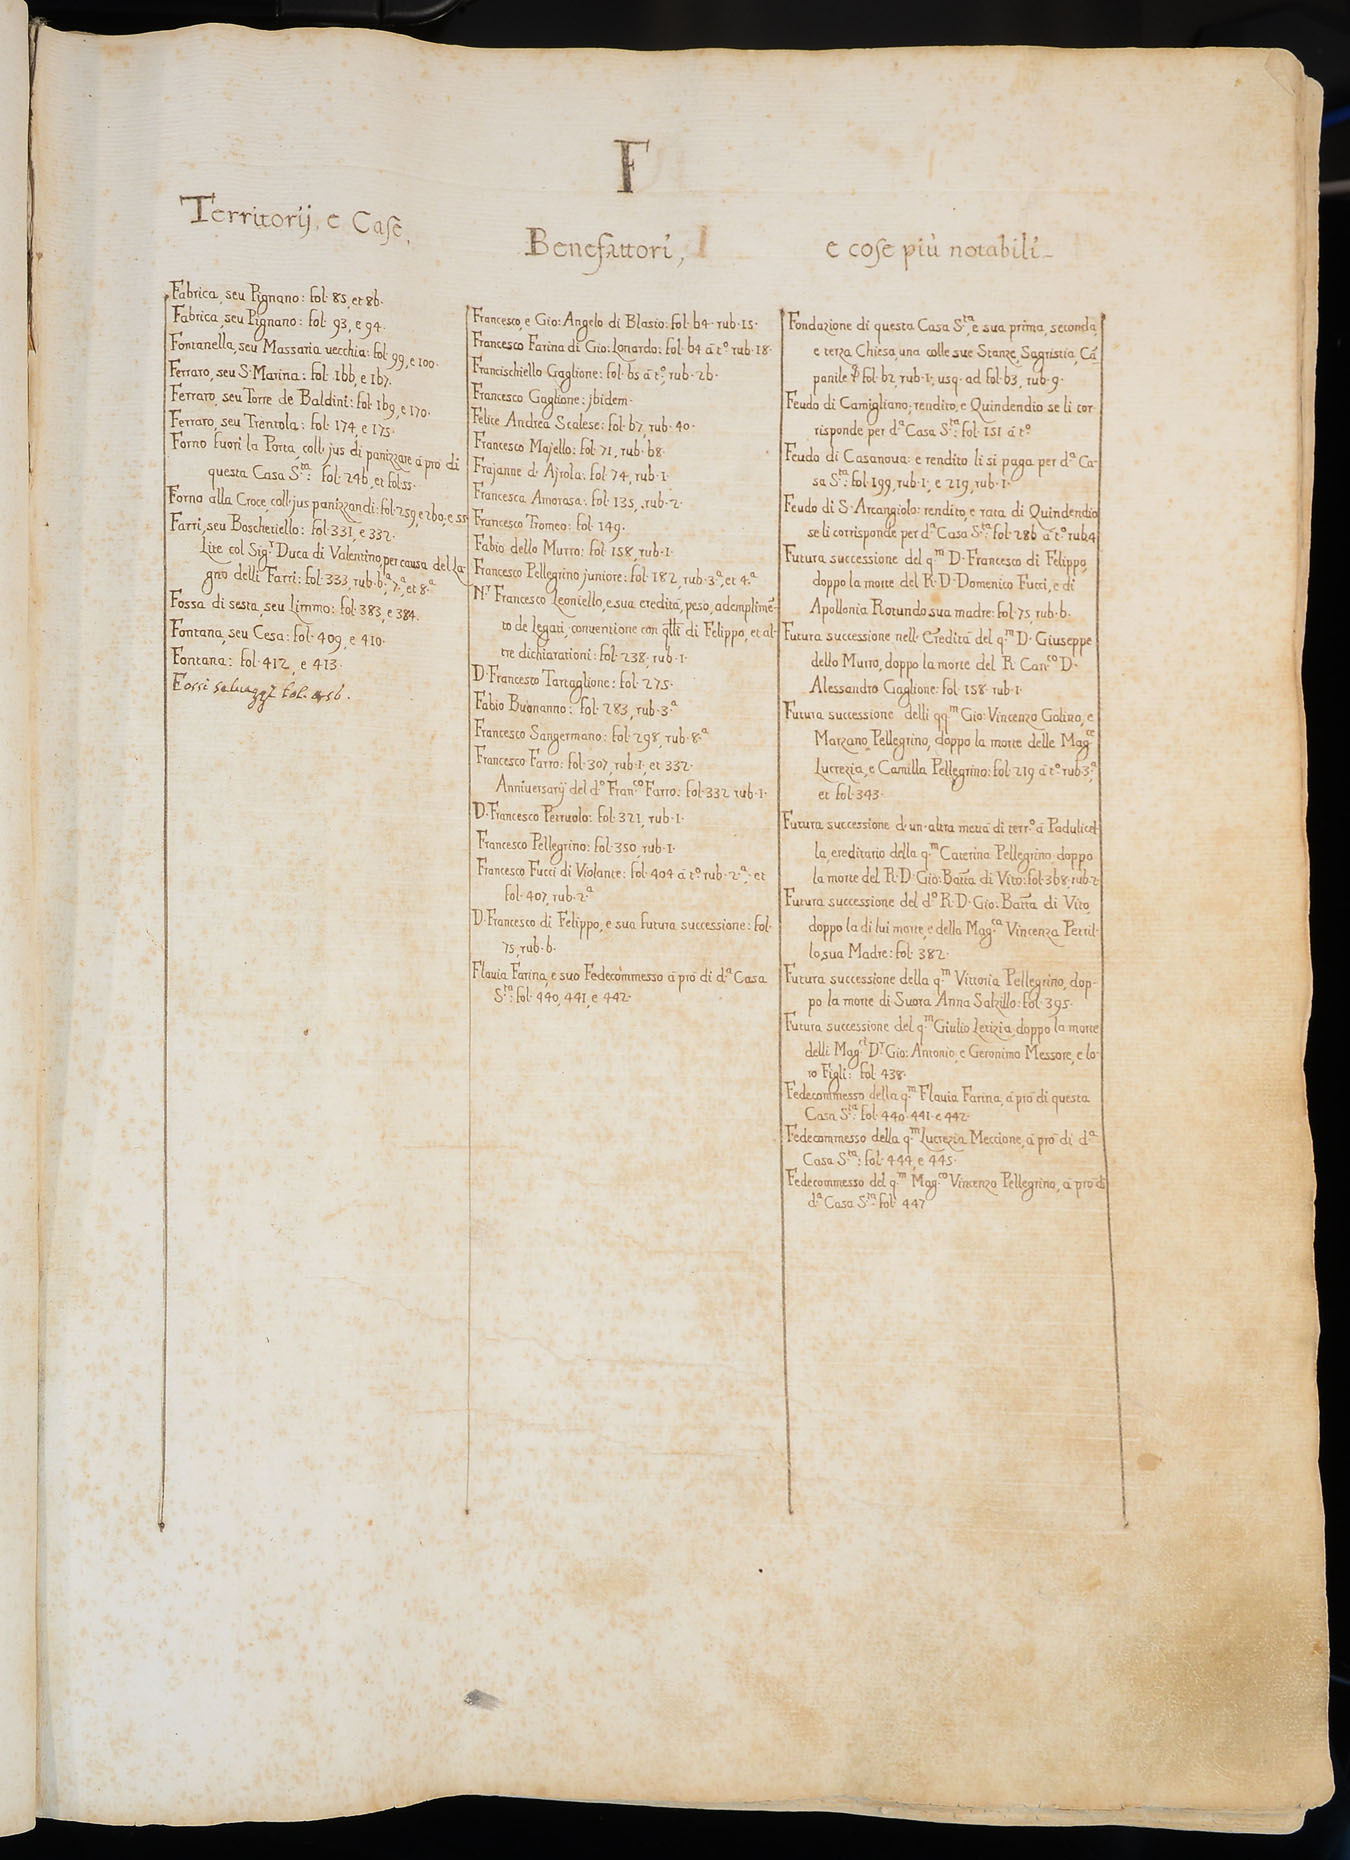 F
Territorij, e Case,
Benefattori,
e cose più notabili
Fabrica, seu Pignano: fol. 85, et 86.
Fabrica, seu Pignano: fol. 93, e 94.
Fontanella, seu Massaria vecchia: fol. 99, e 100.
Ferraro, seu S. Marina: fol. 166, e 167.
Ferraro, seu Torre de Baldini: fol. 169, e 170.
Ferraro, seu Trentola: fol. 174, e 175.
Forno fuori la Porta, coll' jus di panizzare à prò di
questa Casa S.ta: fol. 246, et fol. ss.
Forno alla Croce, coll' jus panizzandi: fol. 259, e 260, e ss.
Farri, seu Boschetiello: fol. 331, e 332.
Lite col Sig.r Duca di Valentino, per causa del La-
gno delli Farri: fol. 333, rub. 6.a, 7.a, et 8.a
Fossa di sesta, seu Limmo: fol. 383, e 384.
Fontana, seu Cesa: fol. 409, e 410.
Fontana: fol. 412, e 413.
Fossi seluaggi fol. 456.
Francesco, e Gio: Angelo di Blasio: fol. 64. rub. 15.
Francesco Farina di Gio: Lonardo: fol. 64 à t.o rub. 18.
Francischiello Gaglione: fol. 65 à t.o, rub. 26.
Francesco Gaglione: jbidem.
Felice Andrea Scalese: fol. 67, rub. 40.
Francesco Majello: fol. 71, rub. 68.
Frajanne d' Ajrola: fol. 74, rub. 1.
Francesca Amorasa: fol. 135, rub. 2.
Francesco Tromeo: fol. 149.
Fabio dello Murro: fol. 158, rub. 1.
Francesco Pellegrino juniore: fol. 182, rub. 3.a, et 4.a
N.r Francesco Leoniello, e sua eredità, peso, adēplimē-
to de Legati, conventione con q̃lli di Felippo, et al-
tre dichiarationi: fol. 238, rub. 1.
D. Francesco Tartaglione: fol. 275.
Fabio Buonanno: fol. 283, rub. 3.a
Francesco Sangermano: fol. 298, rub. 8.a
Francesco Farro: fol. 307, rub. 1, et 332.
Anniuersarij del d.o Fran.co Farro: fol. 332 rub. 1.
D. Francesco Perruolo: fol. 321, rub. 1.
Francesco Pellegrino: fol. 350, rub. 1.
Francesco Fucci di Violante: fol. 404 à t.o rub. 2.a, et
fol. 407, rub. 2.a
D. Francesco di Felippo, e sua futura successione: fol.
75, rub. 6.
Flauia Farina, e suo Fedecommesso à prò di d.a Casa
S.ta: fol. 440, 441, e 442.
Fondazione di questa Casa S.ta, e sua prima, seconda,
e terza Chiesa, una colle sue Stanze, Sagristia, Cā-
panile fol. 62, rub. 1, usq. ad fol. 63, rub. 9.
Feudo di Camigliano; rendito, e Quindendio se li cor-
risponde per d.a Casa S.ta: fol. 151 à t.o
Feudo di Casanoua: e rendito li si paga per d.a Ca-
sa S.ta: fol. 199, rub. 1, e 219, rub. 1.
Feudo di S. Arcangiolo: rendito, e rata di Quindendio
se li corrisponde per d.a Casa S.ta: fol. 286 à t.o rub. 4
Futura successione del q.m D. Francesco di Felippo,
doppo la morte del R. D. Domenico Fucci, e di
Apollonia Rotundo sua madre: fol. 75, rub. 6.
Futura successione nell' Eredità del q.m D. Giuseppe
dello Murro, doppo la morte del R. Can.co D.
Alessandro Gaglione: fol. 158. rub. 1.
Futura successione delli qq.m Gio: Vincenzo Galino, e
Marzano Pellegrino, doppo la morte delle Mag.ce
Lucrezia, e Camilla Pellegrino: fol. 219 à t.o rub. 3.a,
et fol. 343.
Futura successione d' un' altra metà di terr.o à Padulicel-
la, ereditario della q.m Caterina Pellegrino, doppo
la morte del R. D. Gio: Batta di Vito: fol. 368. rub. 2
Futura successione del d.o R. D. Gio: Batta di Vito,
doppo la di lui morte, e della Mag.ca Vincenza Petril-
lo, sua Madre: fol. 382.
Futura successione della q.m Vittoria Pellegrino, dop-
po la morte di Suora Anna Salzillo: fol. 395.
Futura successione del q.m Giulio Letizia, doppo la morte
delli Mag.ci D.r Gio: Antonio, e Geronimo Messore, e lo-
ro Figli: fol. 438.
Fedecommesso della q.m Flauia Farina, à prò di questa
Casa S.ta: fol. 440. 441. e 442.
Fedecommesso della q.m Lucrezia Meccione, à prò di d.a
Casa S.ta: fol. 444, e 445.
Fedecommesso del q.m Mag.co Vincenzo Pellegrino, à prò di
d.a Casa S.ta: fol. 447